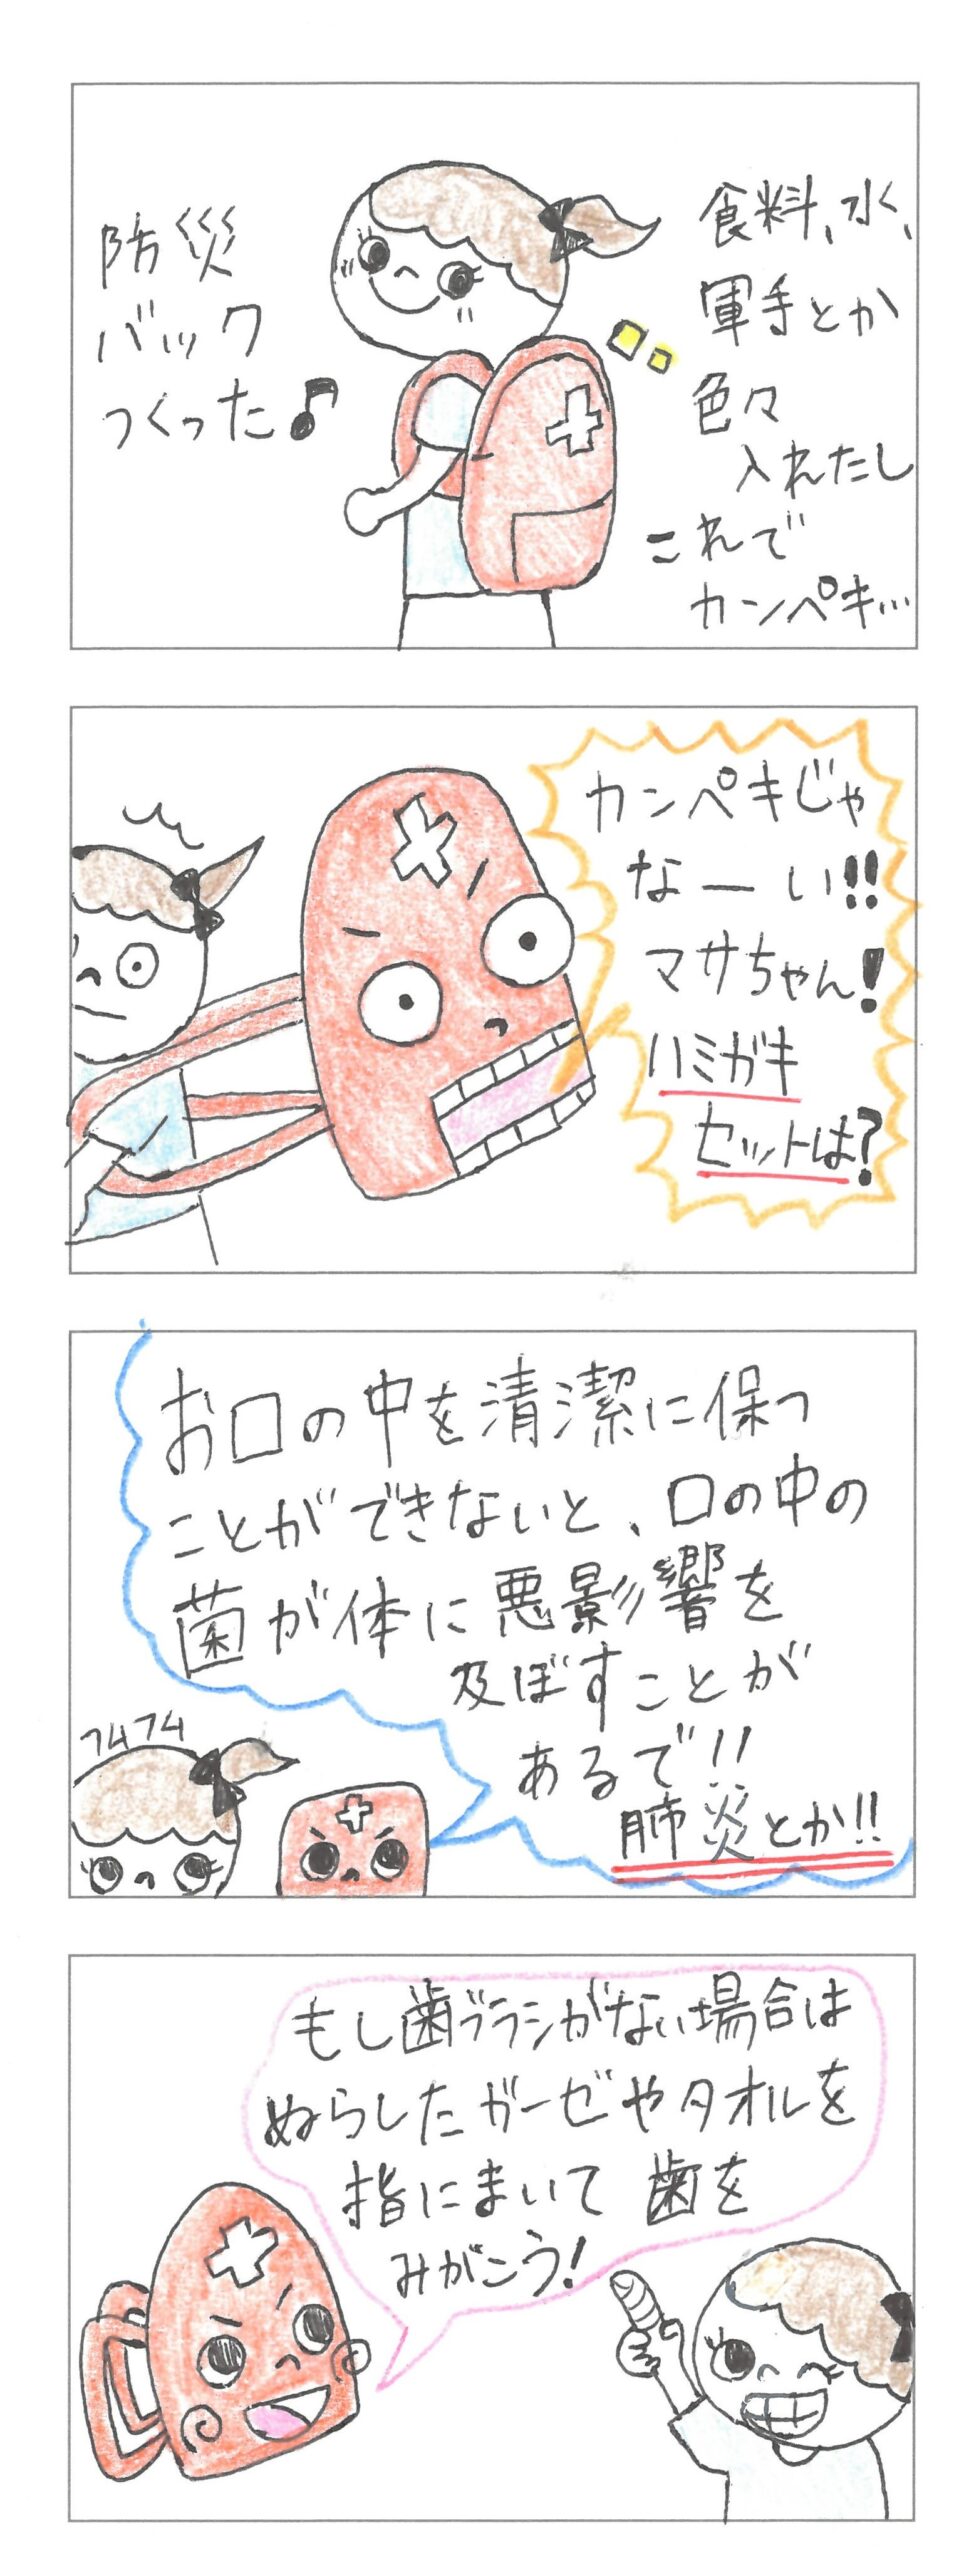 防災
バック
つくった♪
食料、水、
軍手とか
色々
入れたし
これで
カンペキ…
カンペキじゃ
なーい!!
マサちゃん!
ハミガキ
セットは?
お口の中を清潔に保つ
ことができないと、口の中の
菌が体に悪影響を
及ぼすことが
あるで!!
肺炎とか!!
フムフム
もし歯ブラシがない場合は
ぬらしたガーゼやタオルを
指にまいて歯を
みがこう!